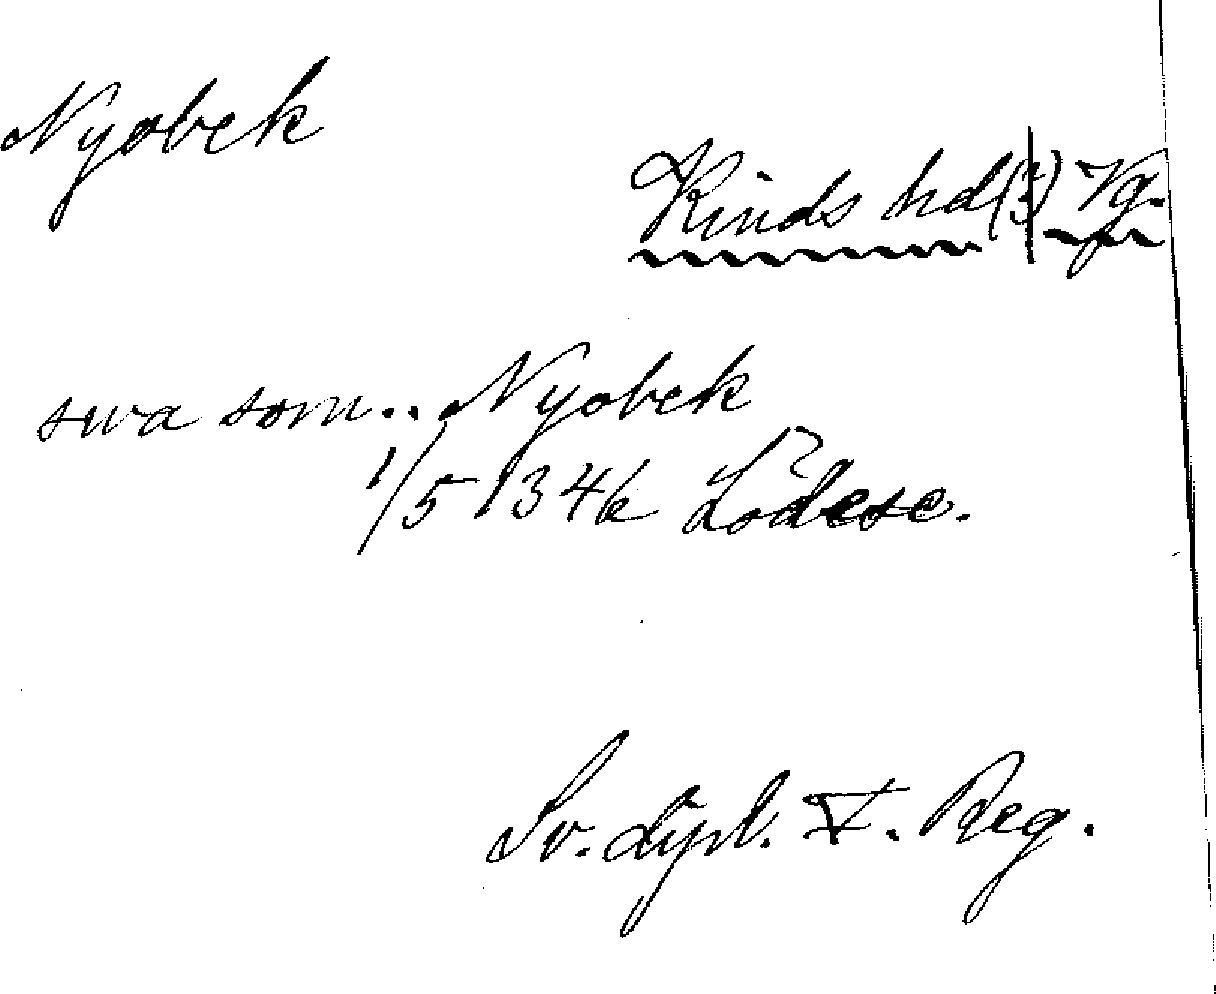 Nyobek
Kinds hd(?) Vg.
swa som.. Nyobek
1/5 1346 Lödese.
Sv. dipl. V. Reg.